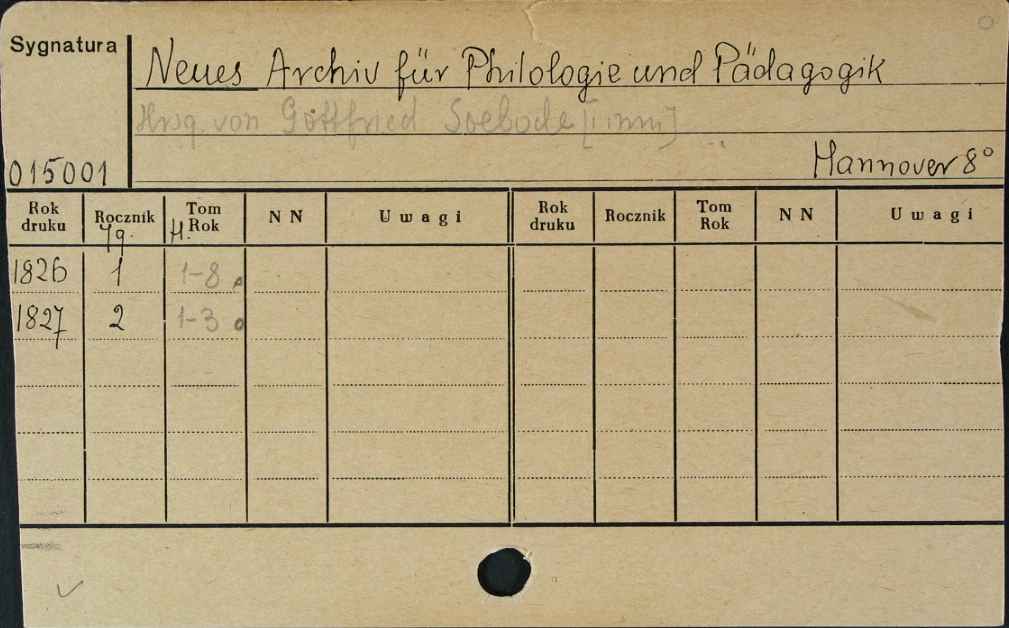 Sygnatura
Neues Archiv für Philologie und Pädagogik
Hrsg. von Gottfried Seebode [i inni]
Hannover 8°
015001
Rok druku Rocznik Jg. Tom H. Rok N N Uwagi Rok druku Rocznik Tom Rok N N Uwagi
1826 1 1-8
1827 2 1-3